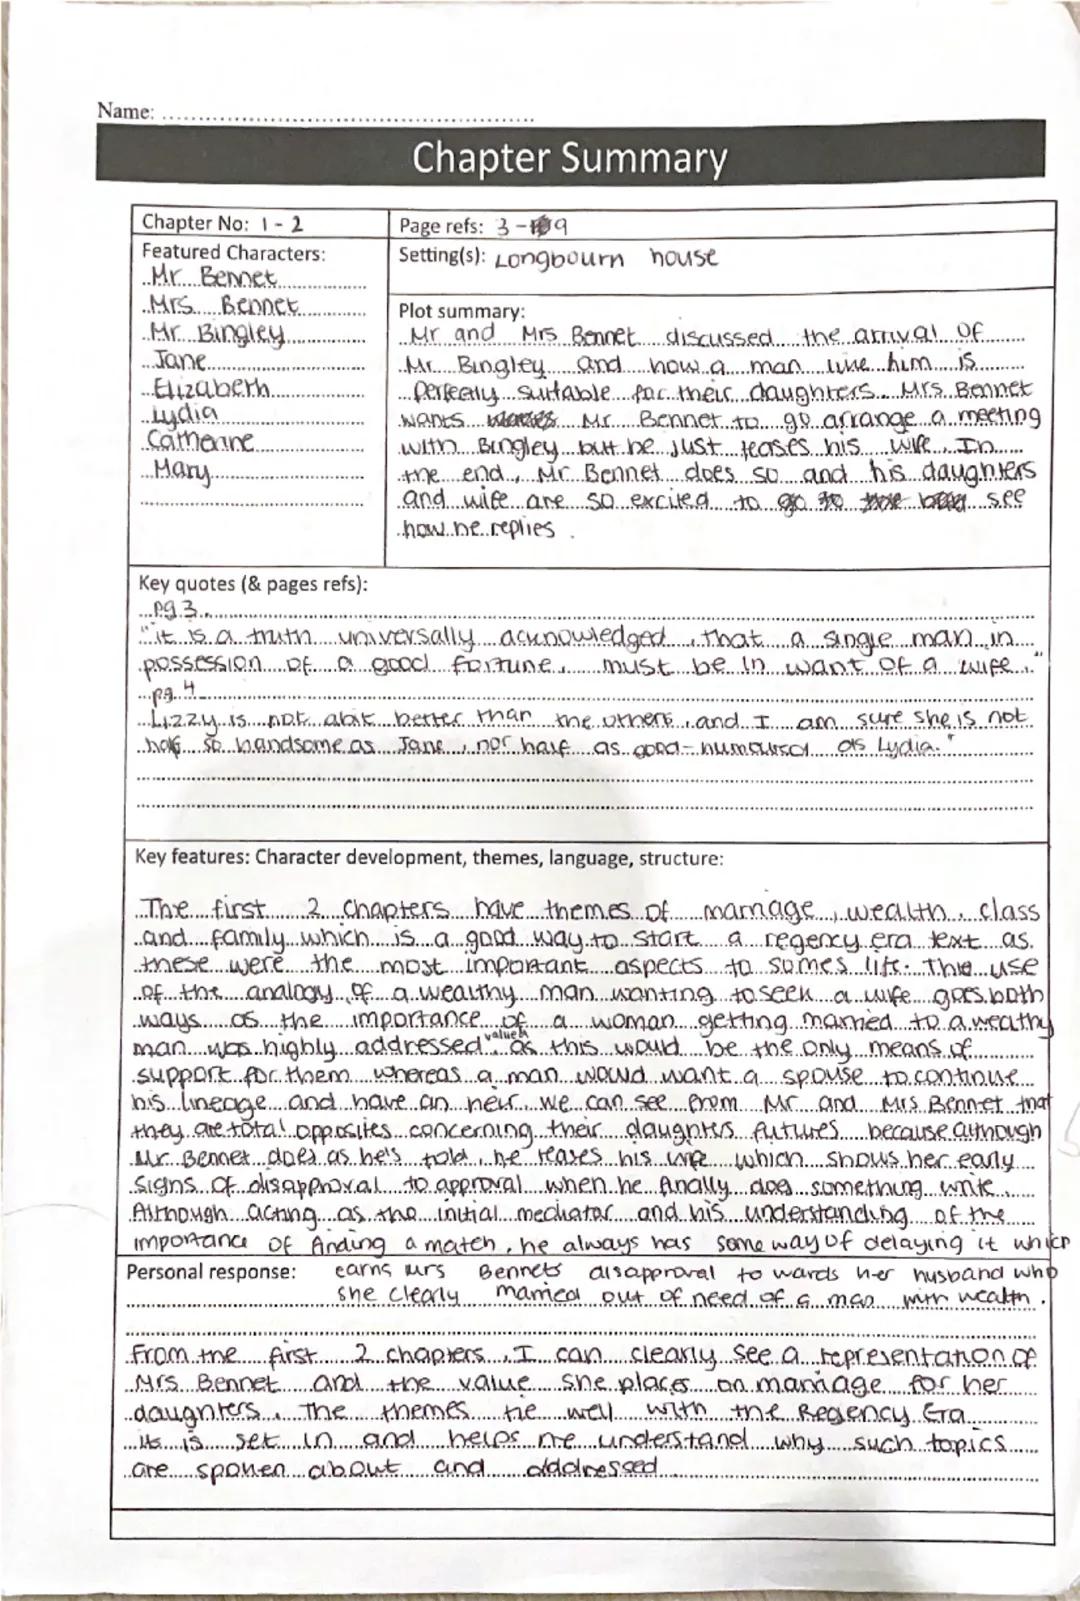 Name:
Chapter Summary
Chapter No: 1 - 2
Page refs: 3 - 9
Featured Characters:
Mr. Bennet
Mrs. Bennet
Mr. Bingley
Jane
Elizabeth
Lydia
Catherine
Mary
Setting(s): Longbourn house
Plot summary:
Mr and Mrs Bennet discussed the arrival of
Mr. Bingley and how a man like him is
perfectly suitable for their daughters. Mrs Bennet
wants Mr. Bennet to go arrange a meeting
with Bingley but he just teases his wife. In
the end, Mr. Bennet does so and his daughters
and wife are so excited to see
how he replies.
Key quotes (& pages refs):
pg 3.
"it is a truth universally acknowledged, that a single man in
possession of a good fortune, must be in want of a wife."
pg. 4
Lizzy is not abit better than the others, and I am sure she is not
half so handsome as Jane, nor half as good-humoured as Lydia."
Key features: Character development, themes, language, structure:
The first 2 chapters have themes of marriage, wealth, class
and family which is a good way to start a regency era text as
these were the most important aspects to somes life. The use
of the analogy of a wealthy man wanting to seek a wife goes both
ways as the importance of a woman getting married to a wealthy
man was highly addressed valued as this would be the only means of
support for them whereas a man would want a spouse to continue
his lineage and have an heir. We can see from Mr and Mrs Bennet that
they are total opposites concerning their daughters futures because although
Mr. Bennet does as he's told, he teases his wife which shows her early
signs of disapproval to approval when he finally does something write.
Although acting as the initial mediator and his understanding of the
importance of finding a match, he always has some way of delaying it which
earns Mrs Bennets disapproval to wards her husband who
she clearly married out of need of a man with wealth.
Personal response:
From the first 2 chapters, I can clearly see a representation of
Mrs. Bennet and the value she places on marriage for her
daughters. The themes tie well with the Regency Era
its is set in and helps me understand why such topics
are spoken about and addressed